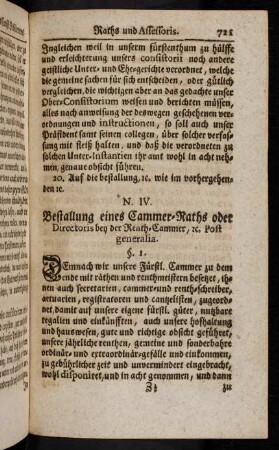 Raths und Assessoris. 721
Ingleichen weil in unserm fürstenthum zu hülffe
und erleichterung unsers consistorii noch andere
geistliche Unter- und Ehe-gerichte verordnet, welche
die gemeine sachen für sich entscheiden, oder gütlich
vergleichen, die wichtigen aber an das gedachte unser
Ober-Consistorium weisen und berichten müssen,
alles nach anweisung der deswegen geschehenen ver-
ordnungen und instructionen, so soll auch unser
Präsident samt seinen collegen, über solcher verfas-
sung mit fleiß halten, und daß die verordneten zu
solchen Unter-Instantien ihr amt wohl in acht neh-
men, genaue obsicht führen.
20. Auf die bestallung, ꝛc. wie im vorhergehen-
den ꝛc.
N. IV.
Bestallung eines Cammer-Raths oder
Directoris bey der Renth-Cammer, ꝛc. Post
generalia.
§. 1.
Demnach wir unsere Fürstl. Cammer zu dem
ende mit räthen und renthmeistern besetzt, ih-
nen auch secretarien, cammer- und renth-schreiber,
actuarien, registratoren und cantzelisten, zugeord-
net, damit auf unsere eigene fürstl. güter, nutzbare
regalien und einkünfften, auch unsere hofhaltung
und hauswesen, gute und richtige obsicht geführet,
unsere jährliche renthen, gemeine und sonderbahre
ordinär- und extraordinär-gefälle und einkommen,
zu gebührlicher zeit und unvermindert eingebracht,
wohl disponiret, und in acht genommen, und dann
Zz zu